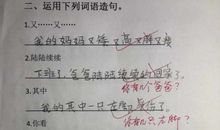 二、运用下列词语造句。
1.又……又……
我的妈妈又矮又高又胖又瘦
2.陆陆续续
下班了,爸爸陆陆续续的回家了。
3.其中 你有几个爸爸?
我的其中一只左脚受伤了。
4.你看 你有几只左脚?